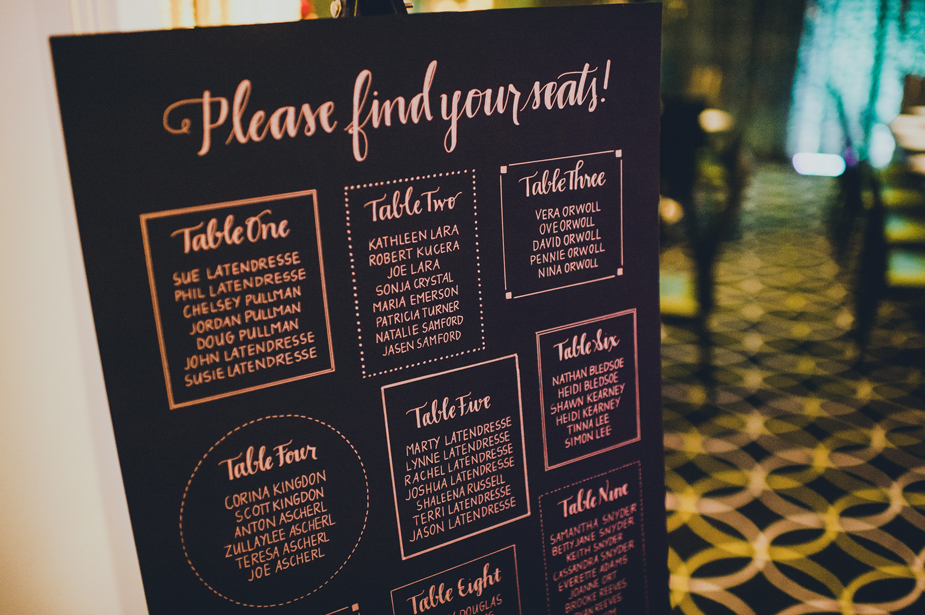 Please find your seats!
Table One
SUE LATENDRESSE
PHIL LATENDRESSE
CHELSEY PULLMAN
JORDAN PULLMAN
DOUG PULLMAN
JOHN LATENDRESSE
SUSIE LATENDRESSE
Table Two
KATHLEEN LARA
ROBERT KUCERA
JOE LARA
SONJA CRYSTAL
MARIA EMERSON
PATRICIA TURNER
NATALIE SAMFORD
JASEN SAMFORD
Table Three
VERA ORWOLL
OVE ORWOLL
DAVID ORWOLL
PENNIE ORWOLL
NINA ORWOLL
Table Four
CORINA KINGDON
SCOTT KINGDON
ANTON ASCHERL
ZULLAYLEE ASCHERL
TERESA ASCHERL
JOE ASCHERL
Table Five
MARTY LATENDRESSE
LYNNE LATENDRESSE
RACHEL LATENDRESSE
JOSHUA LATENDRESSE
SHALEENA RUSSELL
TERRI LATENDRESSE
JASON LATENDRESSE
Table Six
NATHAN BLEDSOE
HEIDI BLEDSOE
SHAWN KEARNEY
HEIDI KEARNEY
TINNA LEE
SIMON LEE
Table Eight
DOUGLAS
Table Nine
SAMANTHA SNYDER
BETTYJANE SNYDER
KEITH SNYDER
CASSANDRA SNYDER
EVERETTE ADAMS
JOANNE ORT
BROOKE REEVES
REEVES